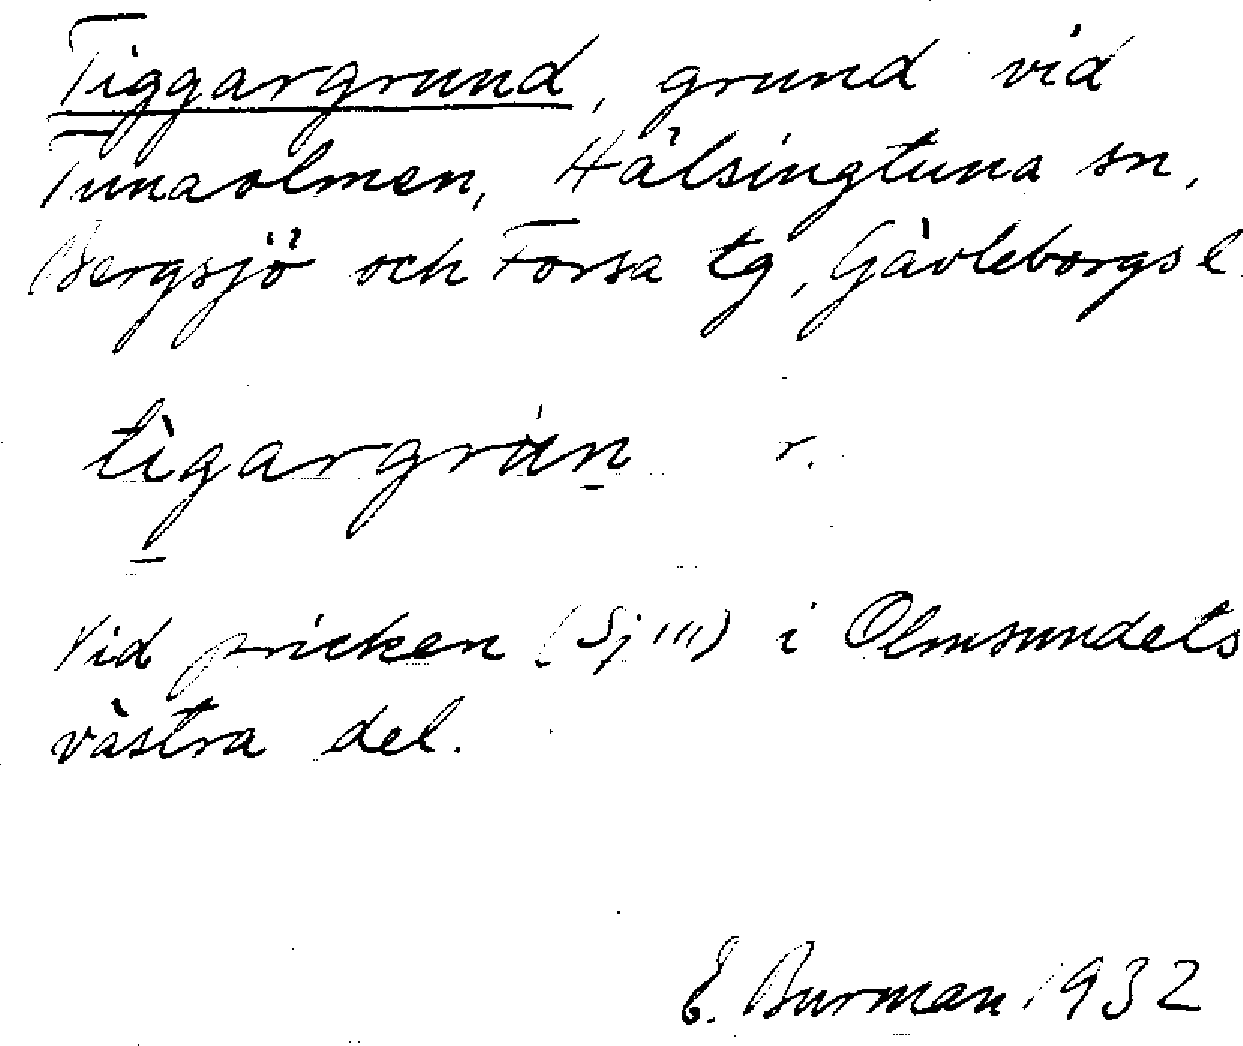 Tiggargrund, grund vid
Tunaolmen, Hälsingtuna sn,
Bergsjö och Forsa tg, Gävleborgs l.
tìgargrún r.
Vid pricken (Sj''') i Olmsundets
västra del.
E. Burman 1932